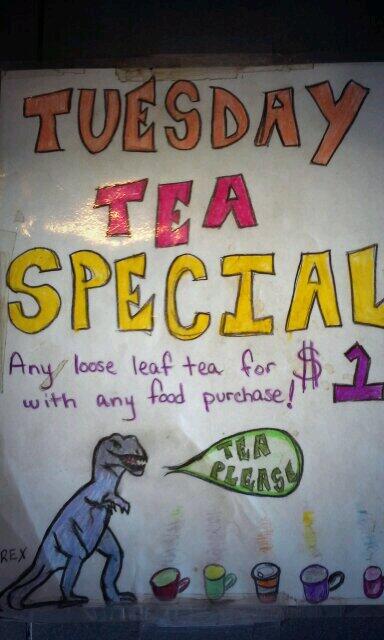 TUESDAY
TEA
SPECIAL
Any loose leaf tea for $1
with any food purchase!
TEA
PLEASE
REX